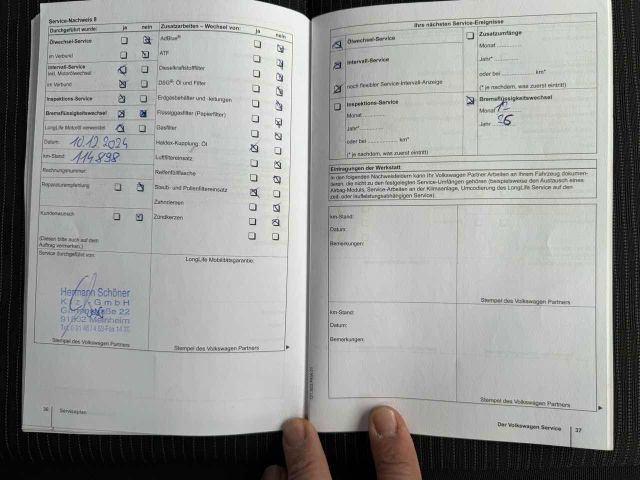 Service-Nachweis 8
Durchgeführt wurde: ja nein
Ölwechsel-Service
im Verbund
Intervall-Service
inkl. Motorölwechsel
im Verbund
Inspektions-Service
Bremsflüssigkeitswechsel
LongLife Motoröl verwendet
Datum: 10.12.2024
km-Stand: 114898
Rechnungsnummer:
Reparaturempfehlung
Kundenwunsch
(Diesen bitte auch auf dem
Auftrag vermerken.)
Service durchgeführt von:
Hermann Schöner
Kfz-GmbH
22
Stempel des Volkswagen Partners
Zusatzarbeiten – Wechsel von: ja nein
AdBlue®
ATF
Dieselkraftstofffilter
DSG®: Öl und Filter
Erdgasbehälter und -leitungen
Flüssiggasfilter (Papierfilter)
Gasfilter
Haldex-Kupplung: Öl
Luftfiltereinsatz
Reifenfüllflasche
Staub- und Pollenfiltereinsatz
Zahnriemen
Zündkerzen
LongLife Mobilitätsgarantie:
Stempel des Volkswagen Partners
36 Serviceplan
Ihre nächsten Service-Ereignisse
Ölwechsel-Service
Intervall-Service
noch flexibler Service-Intervall-Anzeige
Inspektions-Service
Monat
Jahr*
oder bei km*
(* je nachdem, was zuerst eintritt)
Zusatzumfänge
Monat
Jahr*
oder bei km*
(* je nachdem, was zuerst eintritt)
Bremsflüssigkeitswechsel
Monat 12
Jahr 26
Eintragungen der Werkstatt
In den folgenden Nachweisfeldern kann Ihr Volkswagen Partner Arbeiten an Ihrem Fahrzeug dokumen-
tieren, die nicht zu den festgelegten Service-Umfängen gehören (beispielsweise den Austausch eines
Airbag-Moduls, Service-Arbeiten an der Klimaanlage, Umcodierung des LongLife Service auf den
zeit- oder laufleistungsabhängigen Service).
km-Stand:
Datum:
Bemerkungen:
Stempel des Volkswagen Partners
km-Stand:
Datum:
Bemerkungen:
Stempel des Volkswagen Partners
Der Volkswagen Service 37